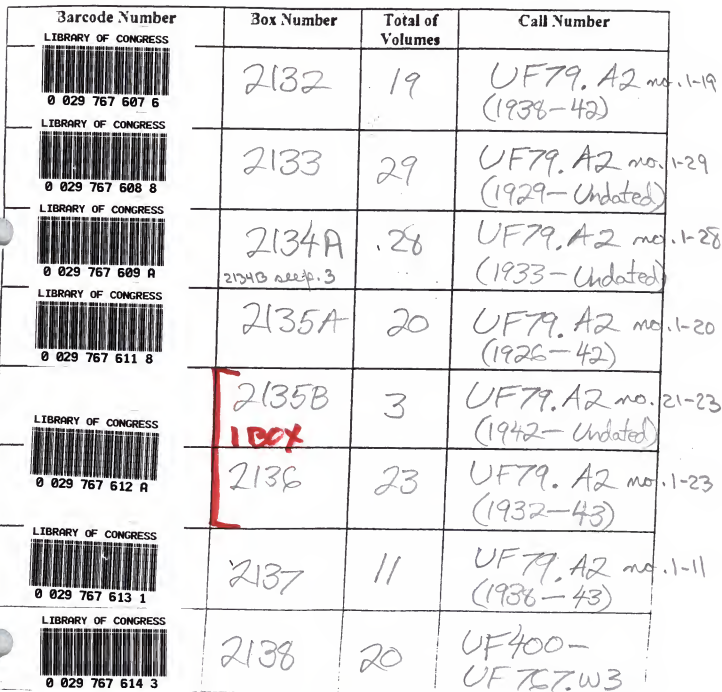 Barcode Number Box Number Total of Volumes Call Number
LIBRARY OF CONGRESS
0 029 767 607 6
2132 19 UF79.A2 no.1-19
(1938-42)
LIBRARY OF CONGRESS
0 029 767 608 8
2133 29 UF79.A2 no.1-29
(1929-Undated)
LIBRARY OF CONGRESS
0 029 767 609 A
2134A 28 UF79.A2 no.1-28
2134B see p. 3 (1933-Undated)
LIBRARY OF CONGRESS
0 029 767 611 8
2135A 20 UF79.A2 no.1-20
(1926-42)
2135B 3 UF79.A2 no.21-23
1 BOX (1942-Undated)
LIBRARY OF CONGRESS
0 029 767 612 A
2136 23 UF79.A2 no.1-23
(1932-43)
LIBRARY OF CONGRESS
0 029 767 613 1
2137 11 UF79.A2 no.1-11
(1938-43)
LIBRARY OF CONGRESS
0 029 767 614 3
2138 20 UF400-
UF767.W3